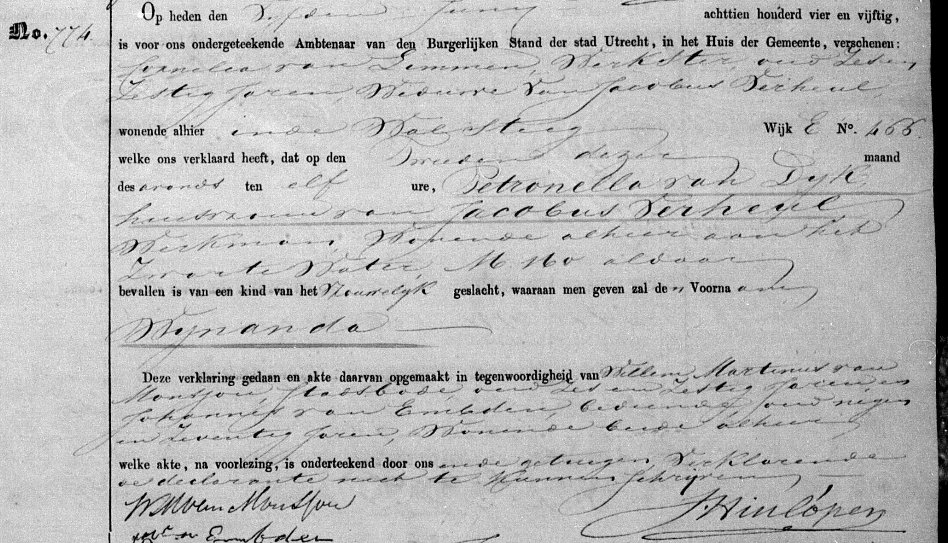 No. 774.
Op heden den Vyfden Juny achttien honderd vier en vijftig,
is voor ons ondergeteekende Ambtenaar van den Burgerlijken Stand der stad Utrecht, in het Huis der Gemeente, verschenen:
Cornelia van Lemmen Werkster, oud zes en
Zestig Jaren, Weduwe van Jacobus Verheul,
wonende alhier in de Walsteeg Wijk E No. 466.
welke ons verklaard heeft, dat op den Tweeden dezer maand
des avonds ten elf ure, Petronella van Dyk,
huisvrouw van Jacobus Verheul
Werkman, Wonende alhier aan het
Zwarte Water, M 160 aldaar
bevallen is van een kind van het Vrouwelyk geslacht, waaraan men geven zal den Voornaam
Wynanda
Deze verklaring gedaan en akte daarvan opgemaakt in tegenwoordigheid van Willem Martinus van
Monsjou, Stadsbode, oud zes en Zestig Jaren en
Johannes van Embden, bediende, oud negen
en Zeventig Jaren, Wonende beide alhier
welke akte, na voorlezing, is onderteekend door ons en de getuigen, Verklarende
de declarante niet te kunnen schryven
WMvan Monsjou
van Embden
J Hinlópen